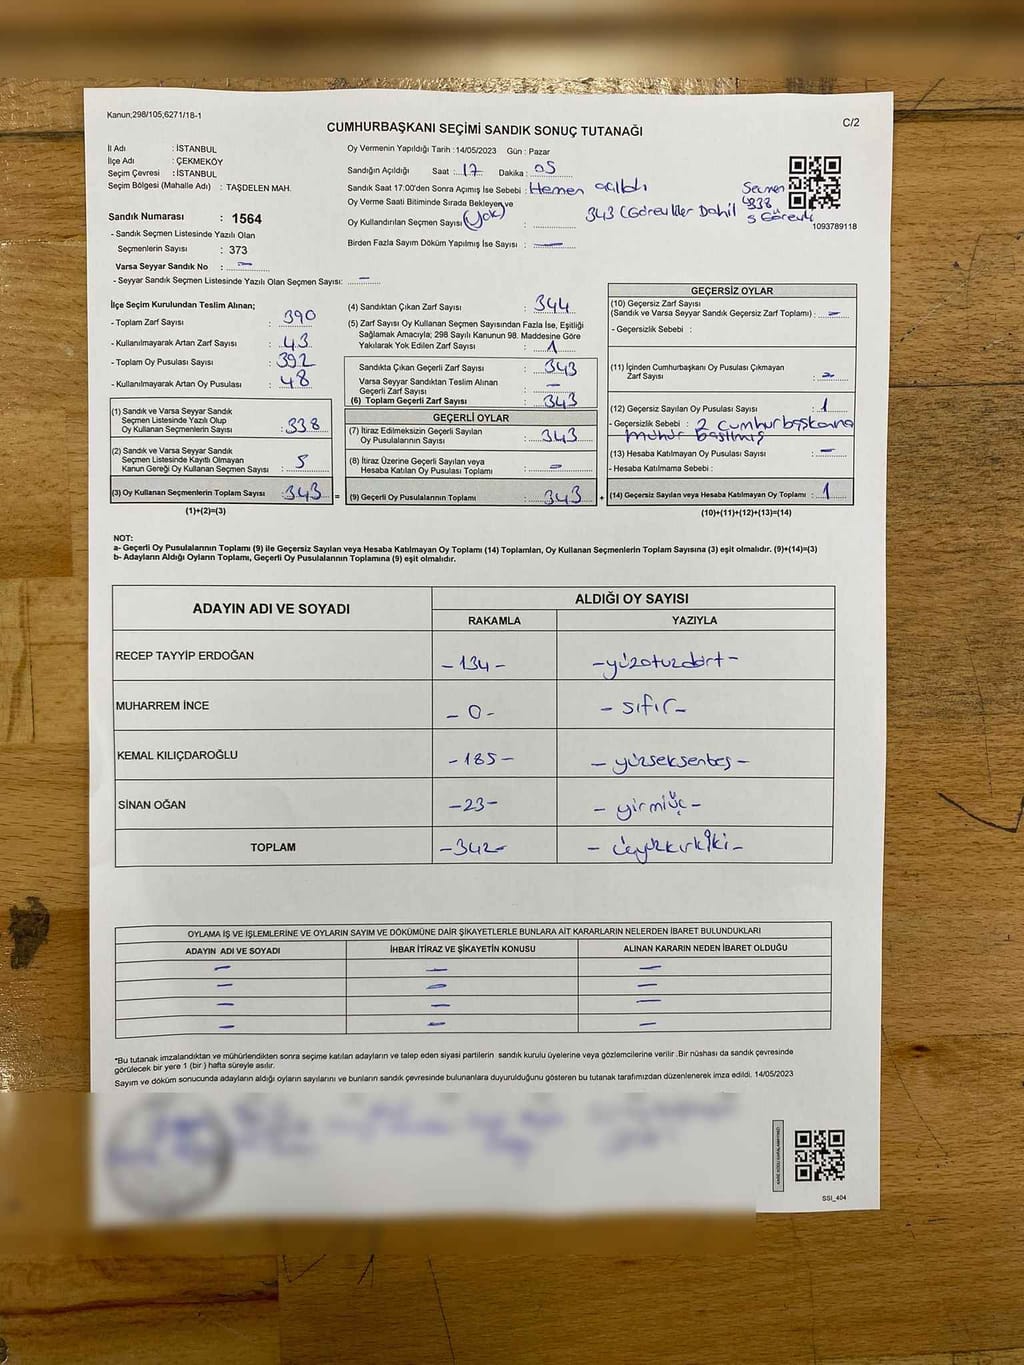 Kanun;298/105,6271/18-1
CUMHURBAŞKANI SEÇİMİ SANDIK SONUÇ TUTANAĞI
C/2
İl Adı : İSTANBUL
İlçe Adı : ÇEKMEKÖY
Seçim Çevresi : İSTANBUL
Seçim Bölgesi (Mahalle Adı) : TAŞDELEN MAH.
Sandık Numarası : 1564
- Sandık Seçmen Listesinde Yazılı Olan
Seçmenlerin Sayısı : 373
Varsa Seyyar Sandık No : —
- Seyyar Sandık Seçmen Listesinde Yazılı Olan Seçmen Sayısı: —
Oy Vermenin Yapıldığı Tarih :14/05/2023 Gün : Pazar
Sandığın Açıldığı Saat : 17 Dakika : 05
Sandık Saat 17:00'den Sonra Açımış İse Sebebi : Hemen açıldı
Oy Verme Saati Bitiminde Sırada Bekleyen ve
Oy Kullandırılan Seçmen Sayısı (yok) : 343 (Görevliler Dahil
Seçmen
338
5 Görevli
Birden Fazla Sayım Döküm Yapılmış İse Sayısı : —
1093789118
İlçe Seçim Kurulundan Teslim Alınan;
- Toplam Zarf Sayısı : 390
- Kullanılmayarak Artan Zarf Sayısı : 43
- Toplam Oy Pusulası Sayısı : 392
- Kullanılmayarak Artan Oy Pusulası : 48
(1) Sandık ve Varsa Seyyar Sandık
Seçmen Listesinde Yazılı Olup
Oy Kullanan Seçmenlerin Sayısı : 338
(2) Sandık ve Varsa Seyyar Sandık
Seçmen Listesinde Kayıtlı Olmayan
Kanun Gereği Oy Kullanan Seçmen Sayısı : 5
(3) Oy Kullanan Seçmenlerin Toplam Sayısı : 343 =
(1)+(2)=(3)
(4) Sandıktan Çıkan Zarf Sayısı : 344
(5) Zarf Sayısı Oy Kullanan Seçmen Sayısından Fazla İse, Eşitliği
Sağlamak Amacıyla; 298 Sayılı Kanunun 98. Maddesine Göre
Yakılarak Yok Edilen Zarf Sayısı : 1
Sandıkta Çıkan Geçerli Zarf Sayısı : 343
Varsa Seyyar Sandıktan Teslim Alınan
Geçerli Zarf Sayısı : —
(6) Toplam Geçerli Zarf Sayısı : 343
GEÇERLİ OYLAR
(7) İtiraz Edilmeksizin Geçerli Sayılan
Oy Pusulalarının Sayısı : 343
(8) İtiraz Üzerine Geçerli Sayılan veya
Hesaba Katılan Oy Pusulası Toplamı : —
(9) Geçerli Oy Pusulalarının Toplamı : 343 +
GEÇERSİZ OYLAR
(10) Geçersiz Zarf Sayısı
(Sandık ve Varsa Seyyar Sandık Geçersiz Zarf Toplamı) : —
- Geçersizlik Sebebi :
(11) İçinden Cumhurbaşkanı Oy Pusulası Çıkmayan
Zarf Sayısı : —
(12) Geçersiz Sayılan Oy Pusulası Sayısı : 1
- Geçersizlik Sebebi : 2 Cumhurbaşkanına
mühür basılmış
(13) Hesaba Katılmayan Oy Pusulası Sayısı : —
- Hesaba Katılmama Sebebi :
(14) Geçersiz Sayılan veya Hesaba Katılmayan Oy Toplamı : 1
(10)+(11)+(12)+(13)=(14)
NOT:
a- Geçerli Oy Pusulalarının Toplamı (9) ile Geçersiz Sayılan veya Hesaba Katılmayan Oy Toplamı (14) Toplamları, Oy Kullanan Seçmenlerin Toplam Sayısına (3) eşit olmalıdır. (9)+(14)=(3)
b- Adayların Aldığı Oyların Toplamı, Geçerli Oy Pusulalarının Toplamına (9) eşit olmalıdır.
ADAYIN ADI VE SOYADI
ALDIĞI OY SAYISI
RAKAMLA YAZIYLA
RECEP TAYYİP ERDOĞAN -134- -yüzotuzdört-
MUHARREM İNCE -0- -sıfır-
KEMAL KILIÇDAROĞLU -185- -yüzseksenbeş-
SİNAN OĞAN -23- -yirmiüç-
TOPLAM -342- -üçyüzkırkiki-
OYLAMA İŞ VE İŞLEMLERİNE VE OYLARIN SAYIM VE DÖKÜMÜNE DAİR ŞİKAYETLERLE BUNLARA AİT KARARLARIN NELERDEN İBARET BULUNDUKLARI
ADAYIN ADI VE SOYADI İHBAR İTİRAZ VE ŞİKAYETİN KONUSU ALINAN KARARIN NEDEN İBARET OLDUĞU
— — —
— — —
— — —
— — —
*Bu tutanak imzalandıktan ve mühürlendikten sonra seçime katılan adayların ve talep eden siyasi partilerin sandık kurulu üyelerine veya gözlemcilerine verilir .Bir nüshası da sandık çevresinde
görülecek bir yere 1 (bir ) hafta süreyle asılır.
Sayım ve döküm sonucunda adayların aldığı oyların sayılarını ve bunların sandık çevresinde bulunanlara duyurulduğunu gösteren bu tutanak tarafımızdan düzenlenerek imza edildi. 14/05/2023
SSİ_404